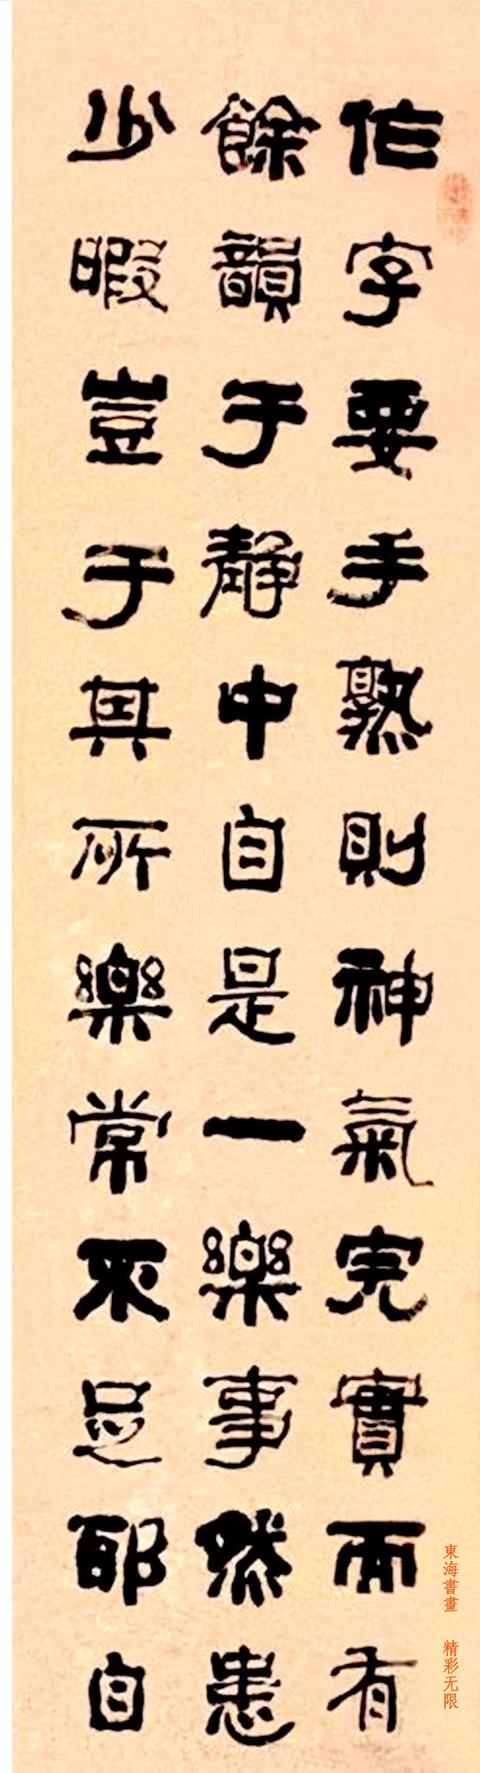 作字要手熟則神氣完實而有
餘韻于靜中自是一樂事然患
少暇豈于其所樂常不足耶自
東海書畫 精彩无限